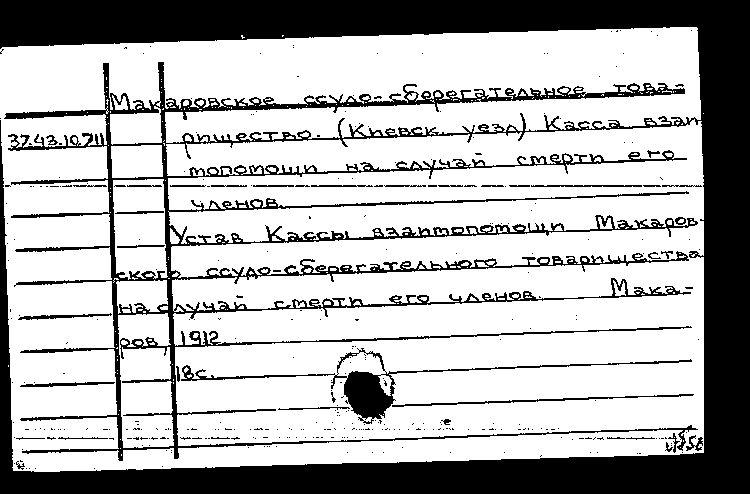 Макаровское ссудо-сберегательное това-
37.43.10.711 рищество. (Киевск. уезд) Касса взаи
мопомощи на случай смерти его
членов.
Устав Кассы взаимопомощи Макаров-
ского ссудо-сберегательного товарищества
на случай смерти его членов. Мака-
ров, 1912.
18с.